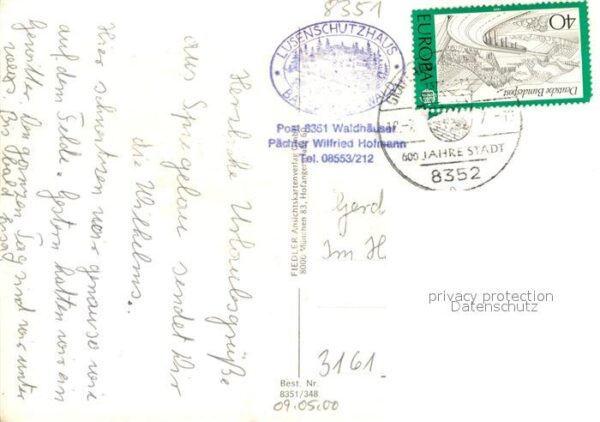 8351
Herzliche Urlaubsgrüße
aus Spiegelau sendet Dir
die Wilhelms.
Hier schwitzen wir genauso wie
auf dem Felde. Gestern hatten wir ein
Gewitter. Den ganzen Tag sind wir unter
wegs. Bis bald
LUSENSCHUTZHAUS
Post 8351 Waldhäuser
Pächter Wilfried Hofmann
Tel. 08553/212
FIEDLER Ansichtskartenverlag GmbH
8000 München 83, Hofangerstraße
Best. Nr.
8351/348
09.05.00
EUROPA
40
Deutsche Bundespost
600 JAHRE STADT
8352
Gerd
Im H
3161
privacy protection
Datenschutz